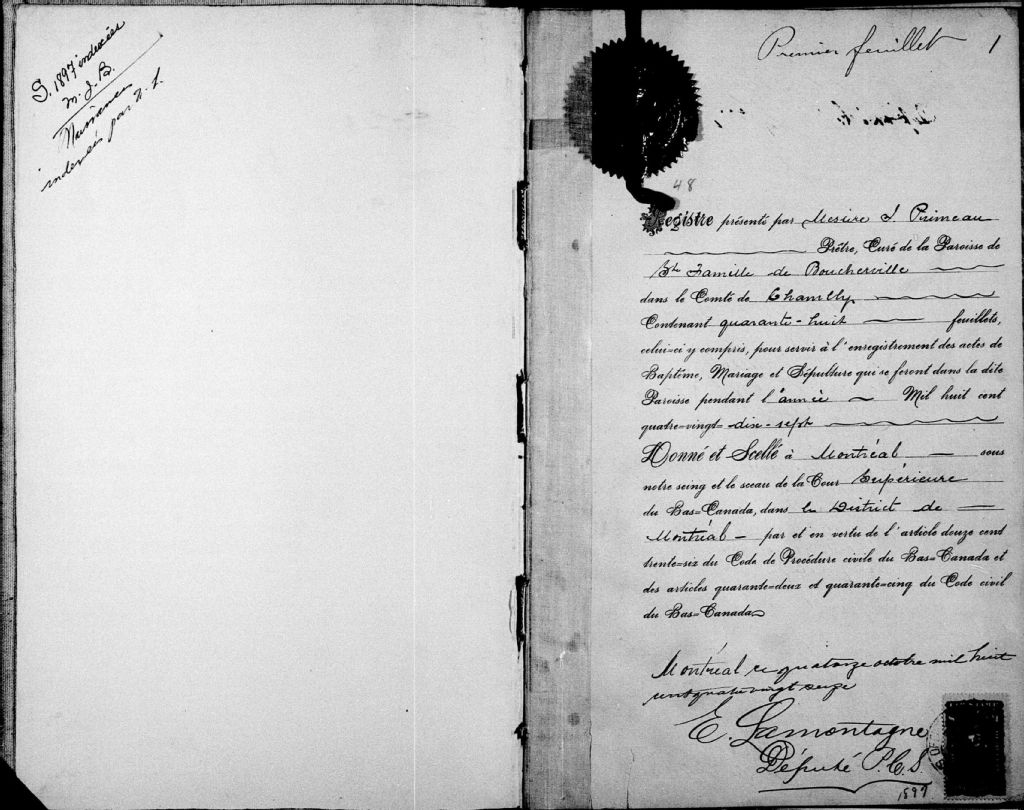 S. 1897 indexées
M. J. B.
Naissances
indexées par
Premier feuillet 1
48
Registre présenté par Messire J. Primeau
Prêtre, Curé de la Paroisse de
Ste Famille de Boucherville
dans le Comté de Chambly
Contenant quarante-huit feuillets,
celui=ci y compris, pour servir à l'enregistrement des actes de
Baptême, Mariage et Sépulture qui se feront dans la dite
Paroisse pendant l'année Mil huit cent
quatre=vingt= dix-sept
Donné et Scellé à Montréal sous
notre seing et le sceau de la Cour Supérieure
du Bas=Canada, dans le District de
Montréal par et en vertu de l'article douze cent
trente=six du Code de Procédure civile du Bas=Canada et
des articles quarante=deux et quarante=cinq du Code civil
du Bas=Canada
Montréal ce quatorze octobre mil huit
cent quatre vingt seize
E. Lamontagne
Député P.C.S.
1897